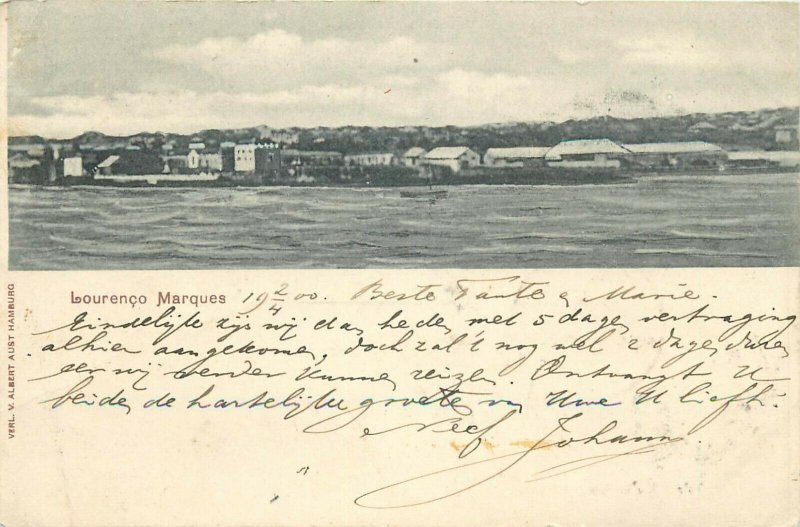 Lourenço Marques 19 2/4 00. Beste Tante en Marie.
Eindelijk zijn wij dan heden met 5 dagen vertraging
alhier aangekomen, doch zal 't nog wel 2 dagen duren
eer wij verder kunnen reizen. Ontvangt U
beiden de hartelijke groeten van Uwe U liefh.
Neef Johann
VERL. V. ALBERT AUST HAMBURG